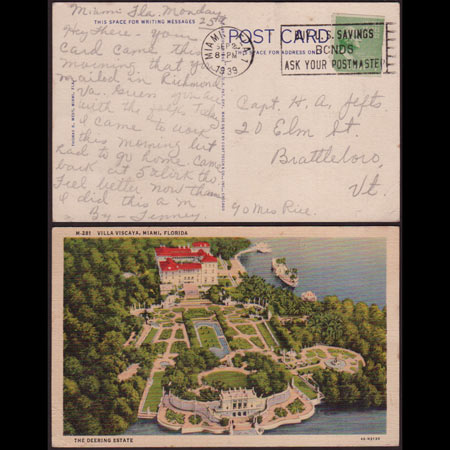 Miami Fla, Monday
25th
THIS SPACE FOR WRITING MESSAGES
POST CARD
THIS SPACE FOR ADDRESS ON
MIAMI, FLA.
SEP 25
8 PM
1939
BUY U.S. SAVINGS
BONDS
ASK YOUR POSTMASTER
Hey There - your
Card came this
morning that you
mailed in Richmond
Va. Guess you are
with the folks
I came to work
this morning but
had to go home. Came
back at 5 oclock tho
Feel better now than
I did this a.m.
By -
Capt. H. A. Jefts.
20 Elm St.
Brattleboro,
Vt.
c/o Mrs Rice.
M-281 VILLA VISCAYA, MIAMI, FLORIDA
THE DEERING ESTATE